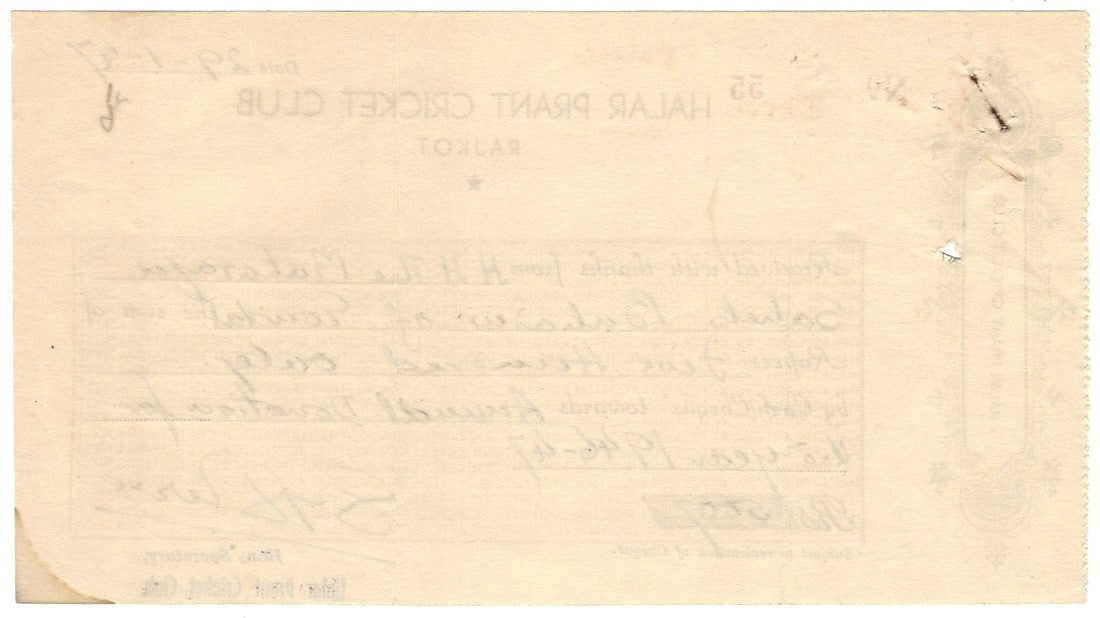 No 55 Date 29-1-47
HALAR PRANT CRICKET CLUB
RAJKOT.
Received with thanks from H H The Maharaja
Saheb Bahadur of Gondal the sum of
Rupees Five Hundred only
by Cash/Cheque towards Annual Donation for
the year 1946-47
Rs. 500/-
Hon. Secretary,
Halar Prant Cricket Club.
Subject to realisation of Cheque.
HALAR PRANT CRICKET CLUB